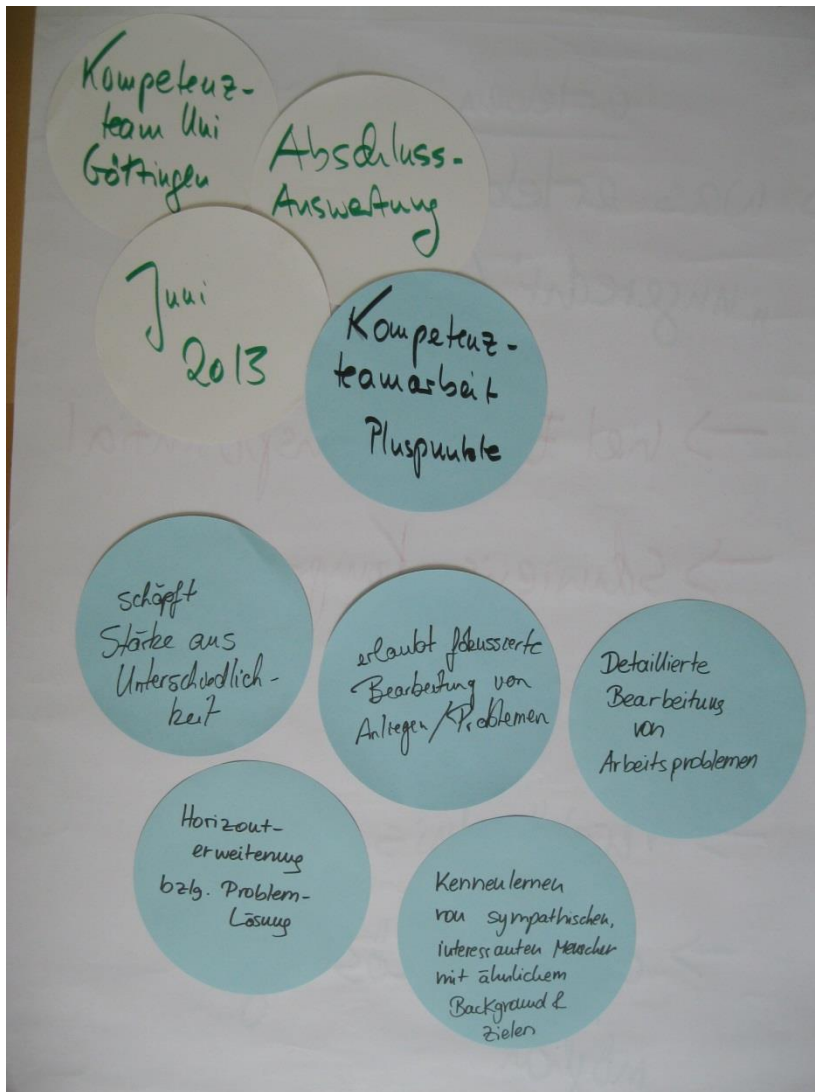 Kompetenz-
team Uni
Göttingen
Abschluss-
Auswertung
Juni
2013
Kompetenz-
teamarbeit
Pluspunkte
schöpft
Stärke aus
Unterschiedlich-
keit
erlaubt fokussierte
Bearbeitung von
Anliegen/Problemen
Detaillierte
Bearbeitung
von
Arbeitsproblemen
Horizont-
erweiterung
bzlg. Problem-
Lösung
Kennenlernen
von sympathischen,
interessanten Menschen
mit ähnlichem
Background &
Zielen